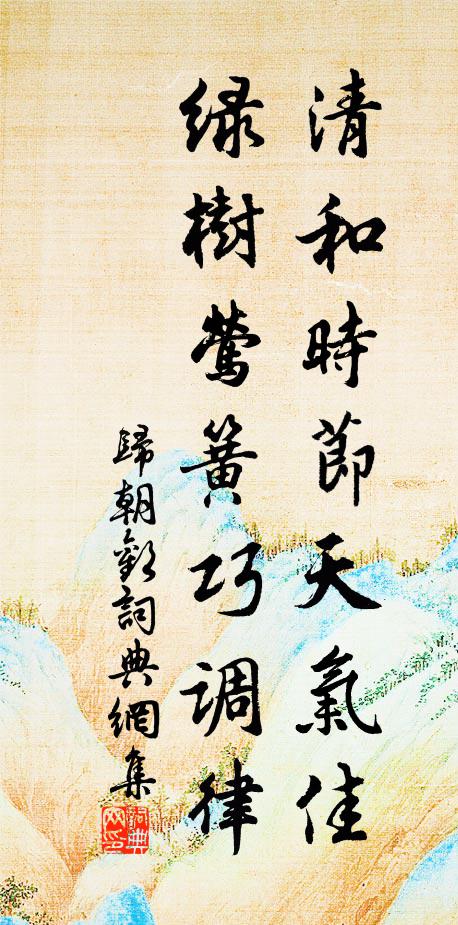 清和時節天氣佳
緑樹鶯簧巧調律
歸朝歡詞典網集
詞典